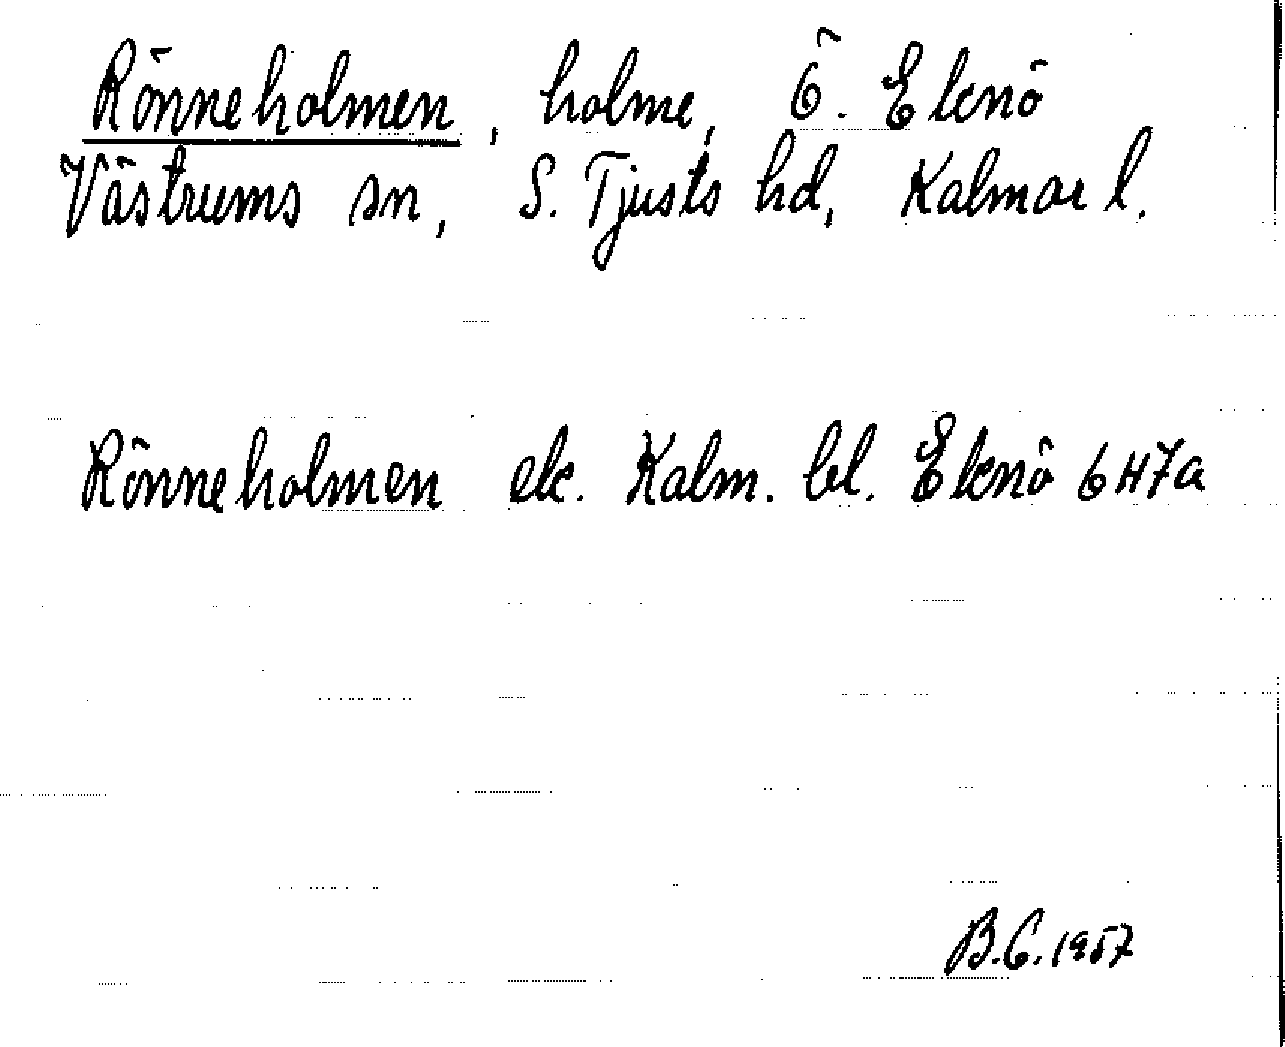 Rönneholmen, holme, Ö. Eknö
Västrums sn, S. Tjusts hd, Kalmar l.
Rönneholmen ek. Kalm. bl. Eknö 6H7a
B.C. 1957